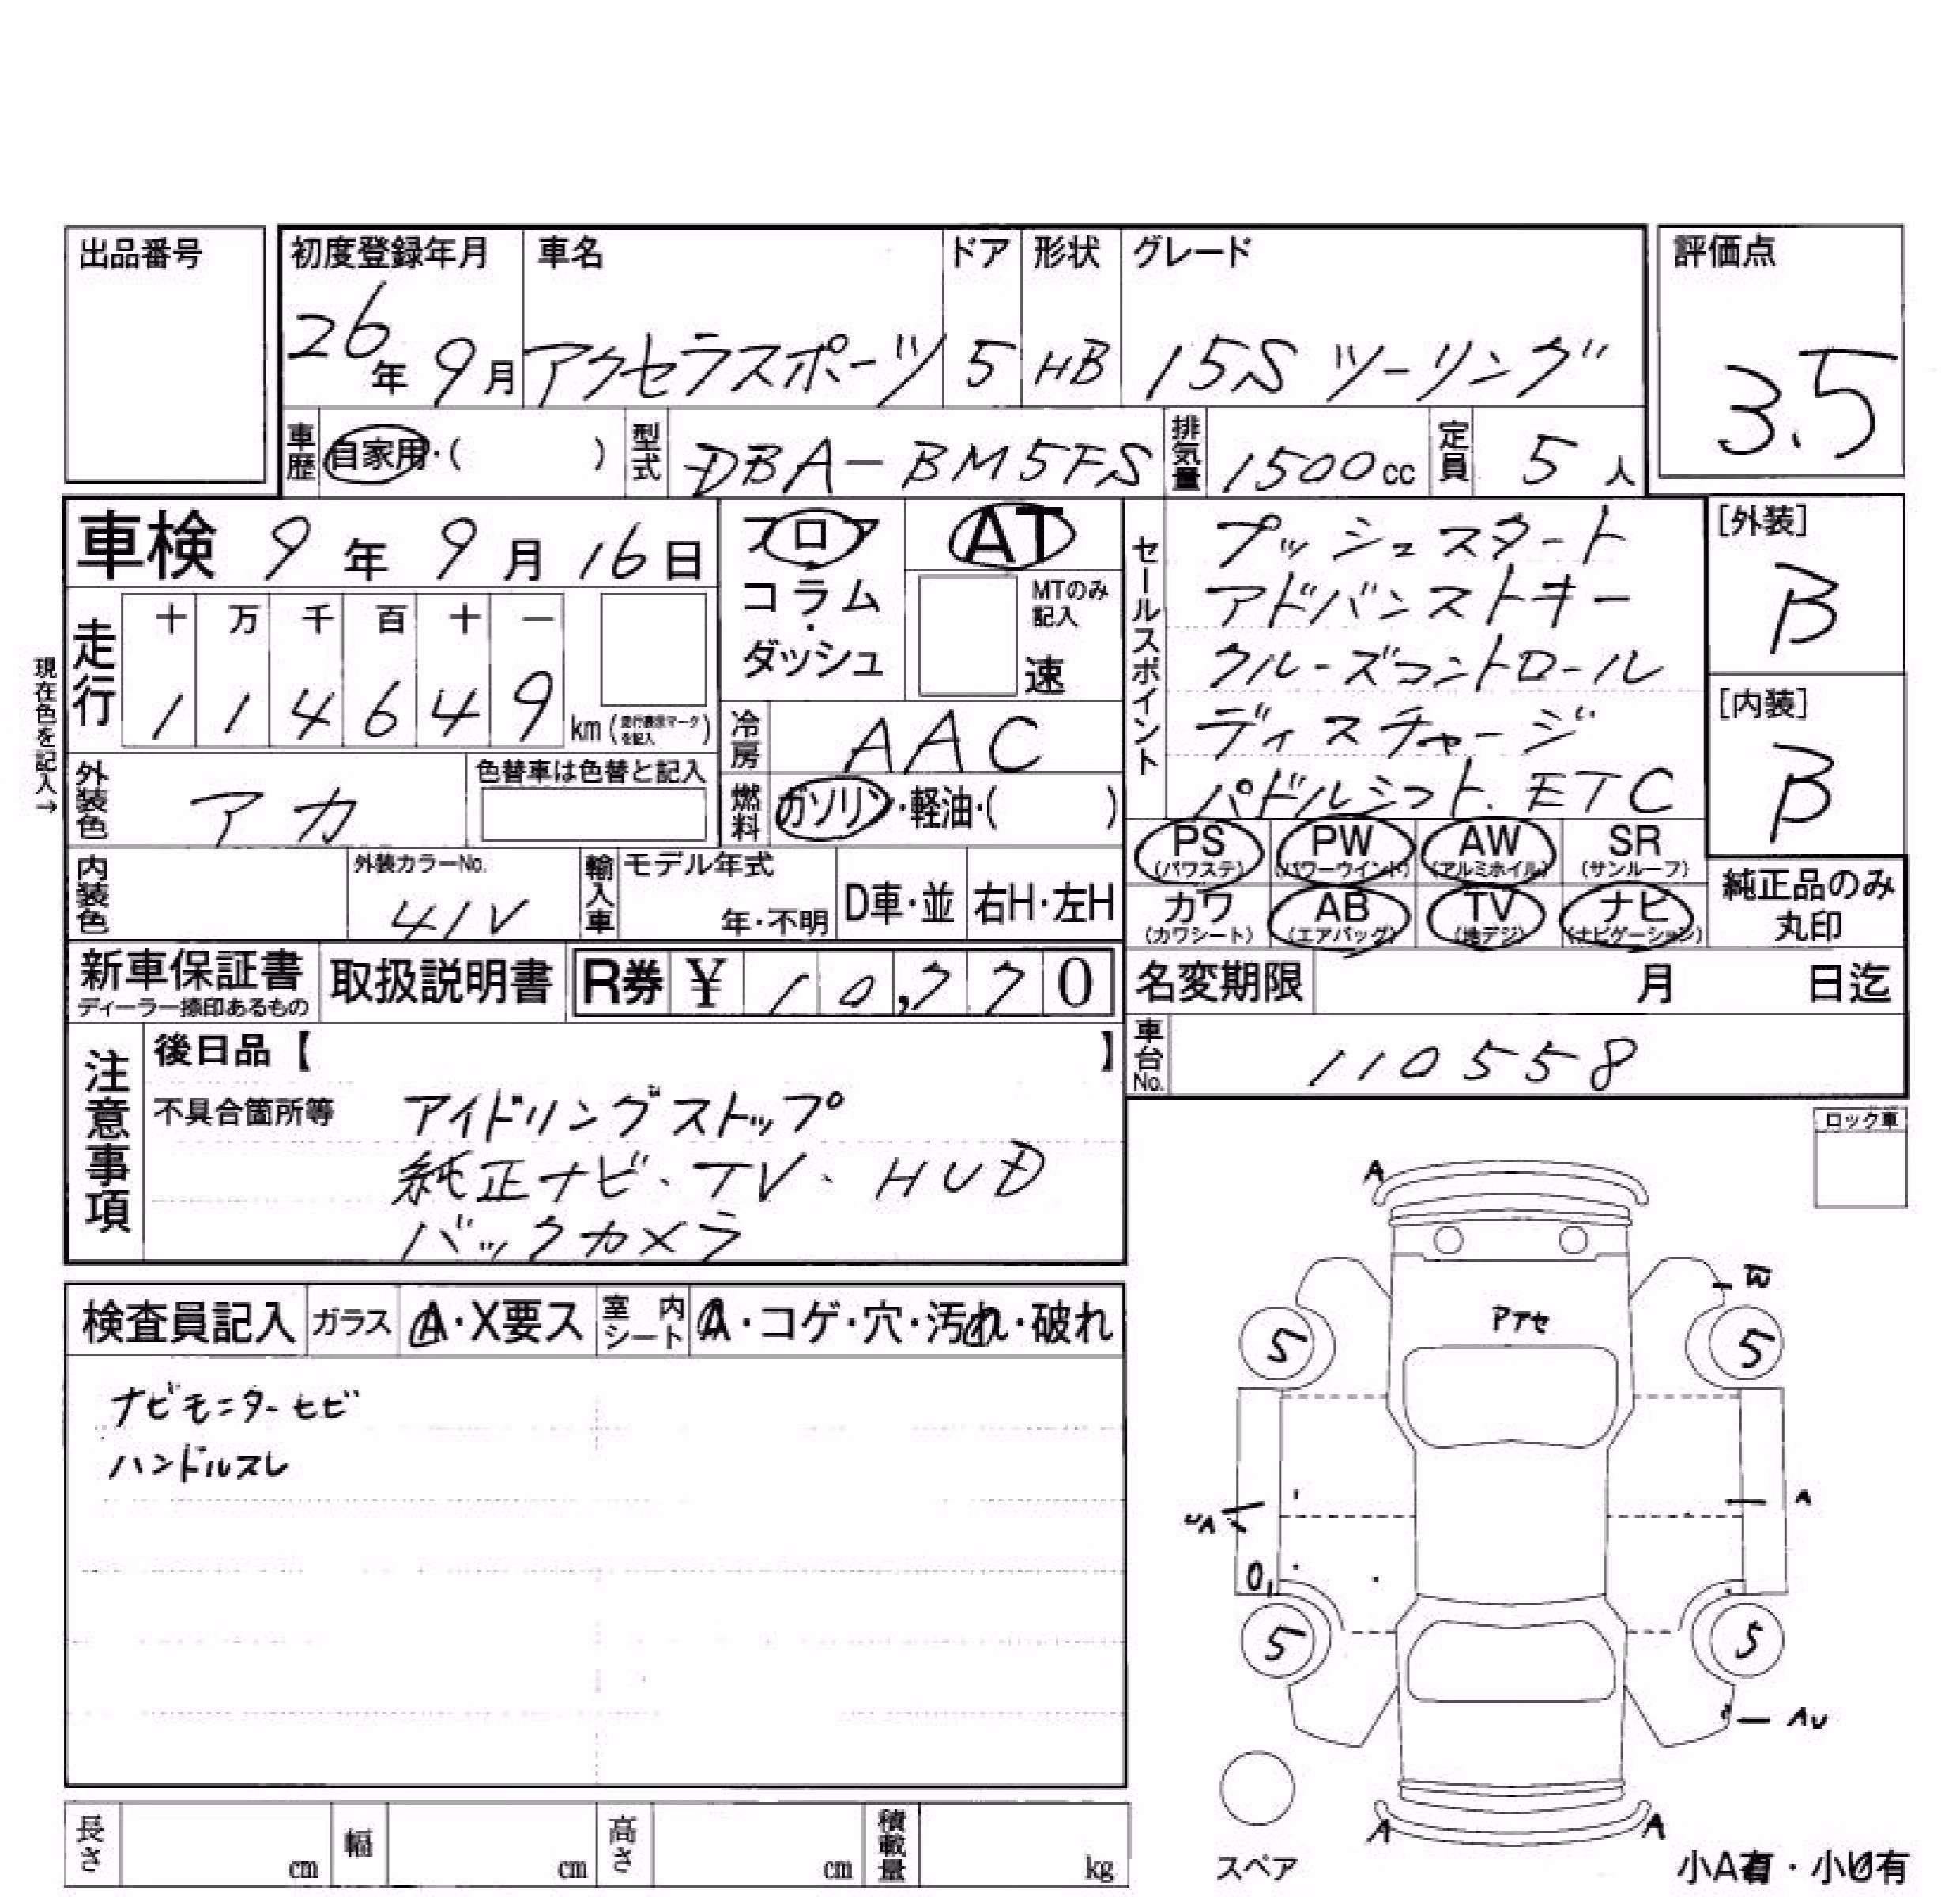 出品番号
初度登録年月 車名 ドア 形状 グレード 評価点
26年 9月 アクセラスポーツ 5 HB 15S ツーリング 3.5
車歴 自家用・( ) 型式 DBA-BM5FS 排気量 1500cc 定員 5人
車検 9年 9月 16日
フロア・コラム・ダッシュ
AT
MTのみ記入
速
走行
十 万 千 百 十 一
1 1 4 6 4 9 km (走行表示マークを記入)
現在色を記入→
冷房 AAC
外装色 アカ 色替車は色替と記入
燃料 ガソリン・軽油・( )
内装色 外装カラーNo. 41V 輸入車 モデル年式 年・不明 D車・並 右H・左H
セールスポイント
プッシュスタート
アドバンストキー
クルーズコントロール
ディスチャージ
パドルシフト、ETC
[外装]
B
[内装]
B
PS (パワステ) PW (パワーウインド) AW (アルミホイル) SR (サンルーフ)
カワ (カワシート) AB (エアバッグ) TV (地デジ) ナビ (ナビゲーション)
純正品のみ丸印
新車保証書 ディーラー捺印あるもの 取扱説明書 R券 ¥ 10,770
名変期限 月 日迄
車台No. 110558
注意事項
後日品【 】
不具合箇所等 アイドリングストップ
純正ナビ、TV、HUD
バックカメラ
ロック車
検査員記入 ガラス A・X要ス 室内シート A・コゲ・穴・汚れ・破れ
ナビモニターヒビ
ハンドルスレ
A
W
Pアセ
5 5
UA A
5 5
AU
A A
スペア
小A有・小U有
長さ cm 幅 cm 高さ cm 積載量 kg